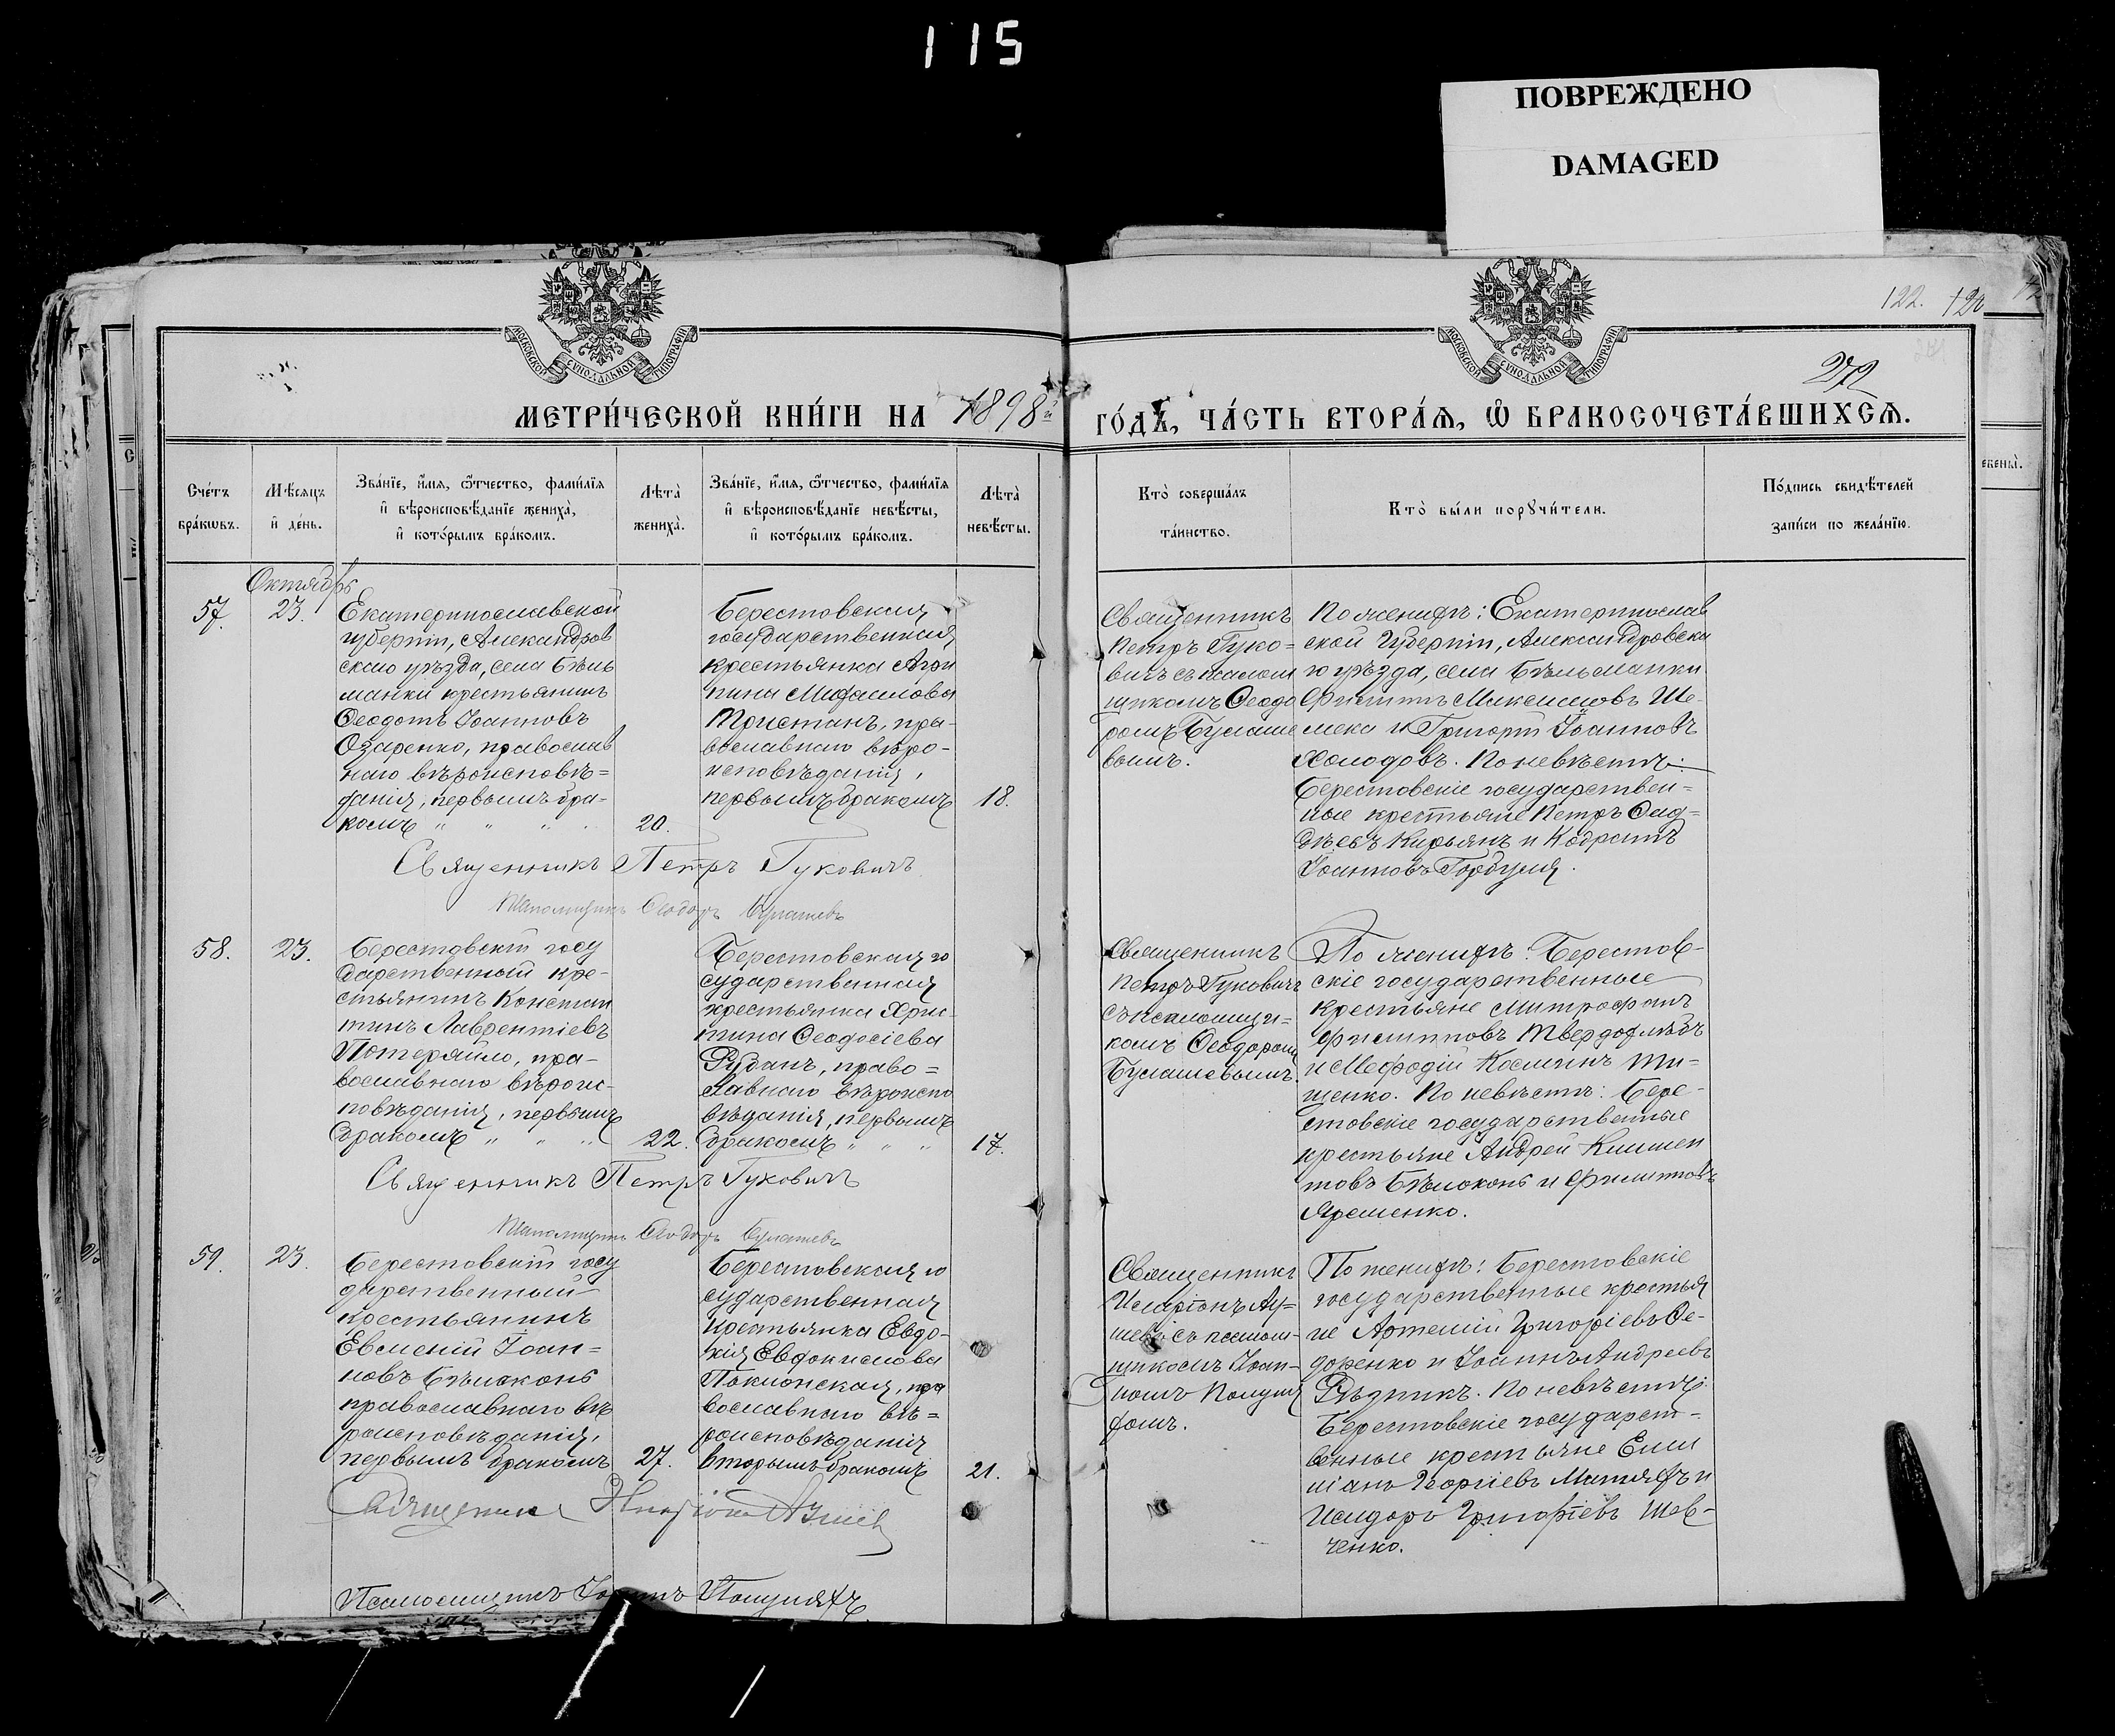 115
ПОВРЕЖДЕНО
DAMAGED
122. 120
272
МОСКОВСКОЙ СУНОДАЛЬНОЙ ТИПОГРАФІИ
МОСКОВСКОЙ СУНОДАЛЬНОЙ ТИПОГРАФІИ
МЕТРИ́ЧЕСКОЙ КНИ́ГИ НА 1898й ГО́ДЪ, ЧА́СТЬ ВТОРА́Ѧ, Ѡ БРАКОСОЧЕТА́ВШИХСѦ.
Сче́тъ
бра́кѡвъ.
Мѣ́сѧцъ
и҆ де́нь.
Зва́нїе, и҆́мѧ, ѻ҆́тчество, фами́лїѧ
и҆ вѣроисповѣ́данїе жениха̀,
и҆ кото́рымъ бра́комъ.
Лѣта̀
жениха̀.
Зва́нїе, и҆́мѧ, ѻ҆́тчество, фами́лїѧ
и҆ вѣроисповѣ́данїе невѣ́сты,
и҆ кото́рымъ бра́комъ.
Лѣта̀
невѣ́сты.
Кто̀ соверша́лъ
та́инство.
Кто̀ бы́ли порꙋчи́тели.
По́дпись свидѣ́телей
за́писи по жела́нїю.
Октябрь
57.
23.
Екатеринославской
губерніи, Александров
скаго уѣзда, села Бѣль
манки крестьянинъ
Ѳеодотъ Іоанновъ
Озаренко, православ
наго вѣроисповѣ=
данія, первымъ бра-
комъ " " "
20.
Берестовская
государственная
крестьянка Агри
пина Михаилова
Тристанъ, пра-
вославнаго вѣро-
исповѣданія,
первымъ бракомъ
18.
Священникъ
Петръ Гуко=
вичъ съ псалом
щикомъ Ѳеодо
ромъ Булаше
вымъ.
По женихѣ: Екатеринослав
ской губерніи, Александровска
го уѣзда, села Бѣльманки
Филиппъ Максимовъ Ше-
мека и Григорій Іоанновъ
Холодовъ. По невѣстѣ:
Берестовскіе государствен=
ные крестьяне Петръ Ѳад=
дѣевъ Кирьянъ и Кодратъ
Іоанновъ Горбуля.
Священникъ Петръ Гуковичъ
Псаломщикъ Ѳеодоръ Булашевъ
58.
23.
Берестовскій госу
дарственный кре-
стьянинъ Констан
тинъ Лаврентіевъ
Потеряйло, пра-
вославнаго вѣроис-
повѣданія, первымъ
бракомъ " " "
22.
Берестовская го
сударственная
крестьянка Хрис
тина Ѳеодосіева
Рубанъ, право=
славнаго вѣроиспо
вѣданія, первымъ
бракомъ " " "
17.
Священникъ
Петръ Гуковичъ
съ псаломщи=
комъ Ѳеодоромъ
Булашевымъ.
По женихѣ: Берестов-
скіе государственные
крестьяне Митрофанъ
Филипповъ Твердохлѣбъ
и Меѳодій Косминъ Ти-
щенко. По невѣстѣ: Бере-
стовскіе государственные
крестьяне Андрей Климен
товъ Бѣлоконь и Филипповъ
Яременко.
Священникъ Петръ Гуковичъ
Псаломщикъ Ѳеодоръ Булашевъ
59.
23.
Берестовскій госу
дарственный
крестьянинъ
Евсменій Іоан=
новъ Бѣлоконь
православнаго вѣ
роисповѣданія,
первымъ бракомъ
27.
Берестовская го
сударственная
крестьянка Евдо-
кія Евдокимова
Поклонская, пра
вославнаго вѣ=
роисповѣданія
вторымъ бракомъ
21.
Священникъ
Иларіонъ
съ псалом-
щикомъ Іоан-
номъ Полуля
хомъ.
По женихѣ: Берестовскіе
государственные крестья
не Артемій Григоріевъ Ѳе-
доренко и Іоаннъ Андреевъ
Рѣзникъ. По невѣстѣ:
Берестовскіе государст-
венные крестьяне Еми
ліанъ Георгіевъ и
Исидоръ Григоріевъ Шев-
ченко.
Священникъ Иларіонъ
Псаломщикъ Іоаннъ Полуляхъ